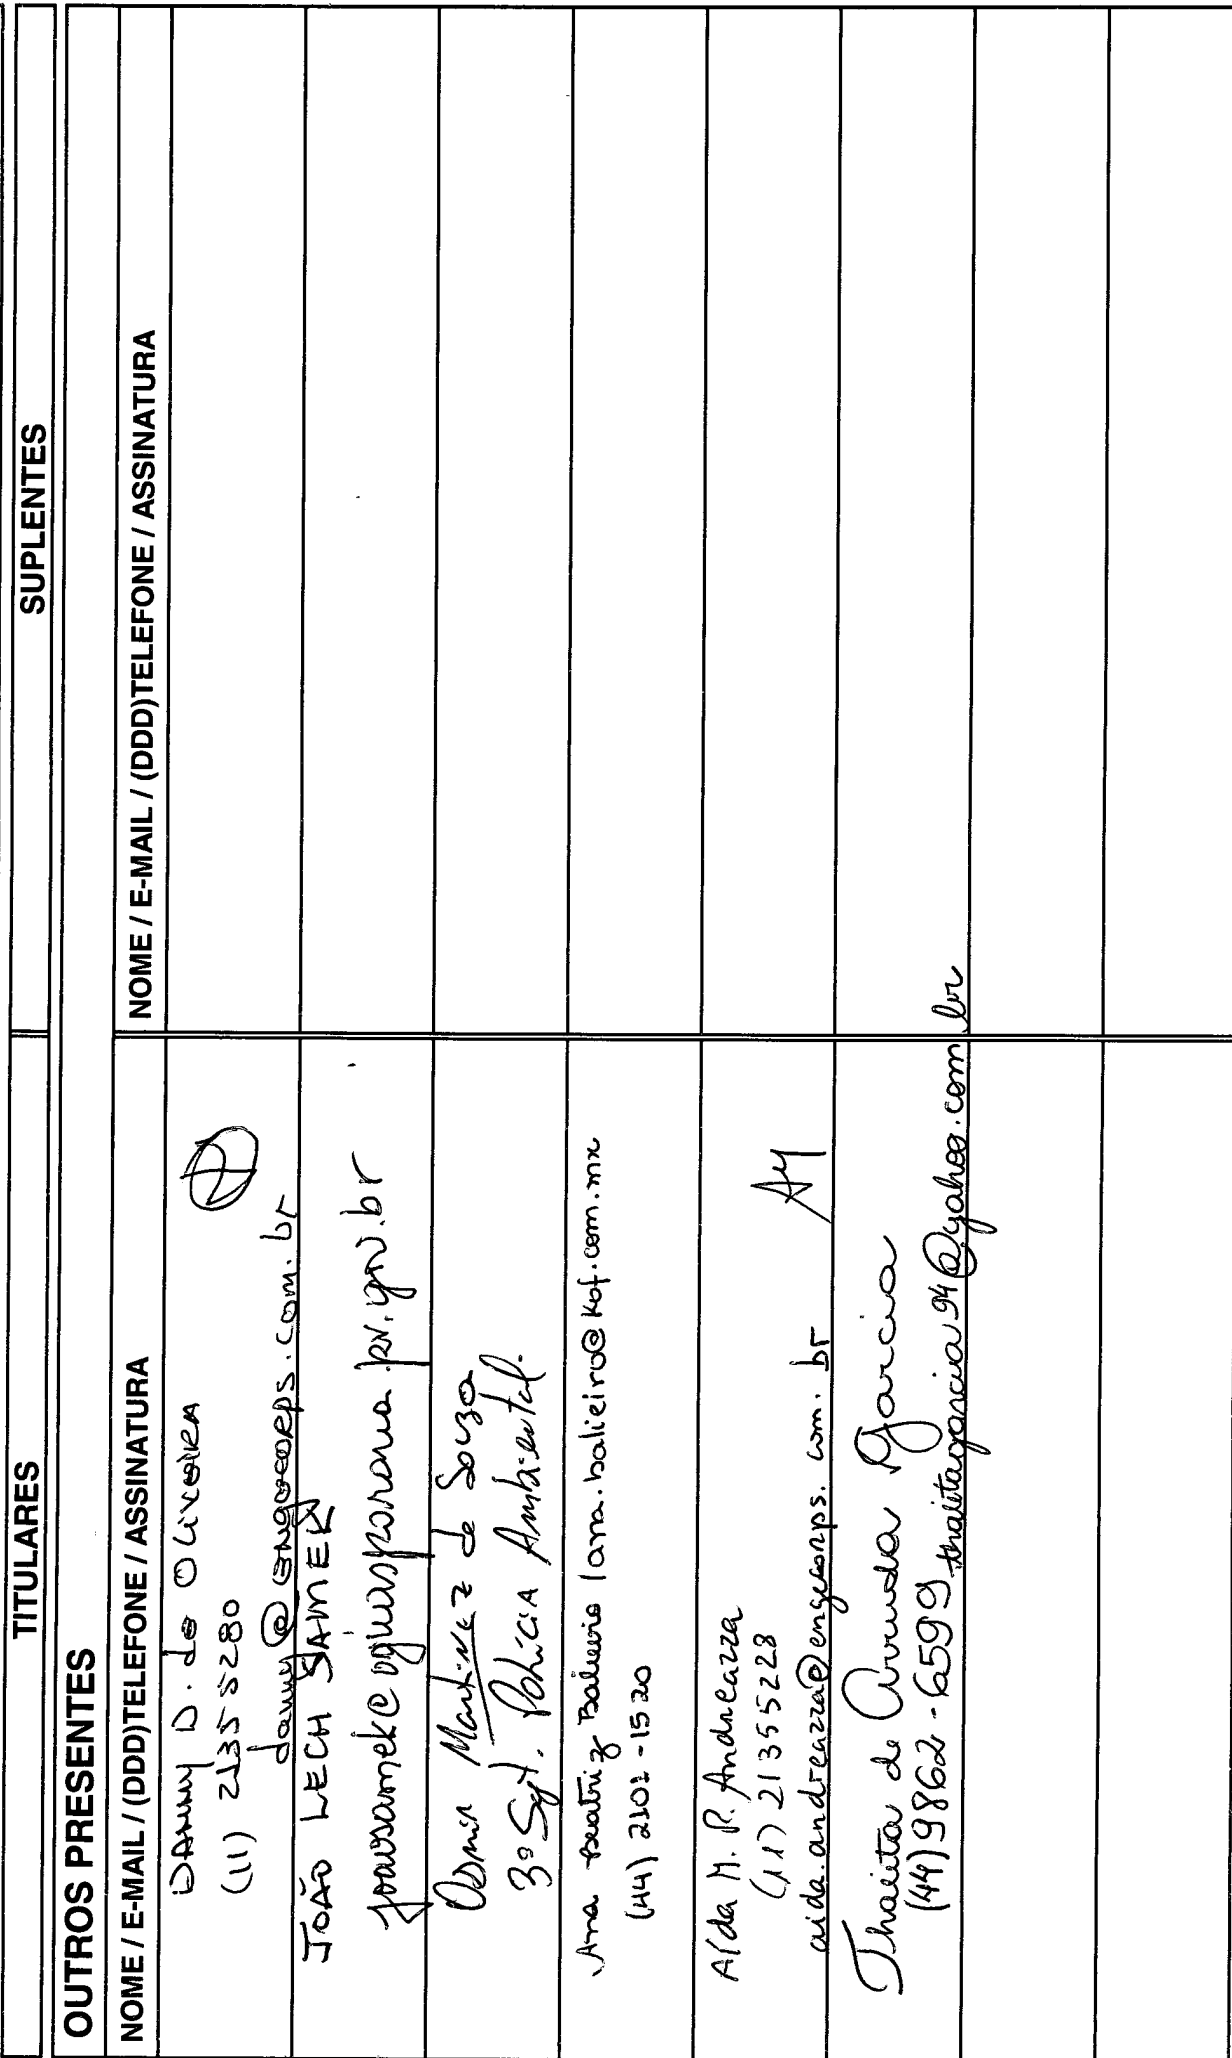 TITULARES
SUPLENTES
OUTROS PRESENTES
NOME / E-MAIL / (DDD)TELEFONE / ASSINATURA
NOME / E-MAIL / (DDD)TELEFONE / ASSINATURA
DANNY D. de OLIVEIRA
(11) 2135 5280
danny@engecorps.com.br
JOÃO LECH SAMEK
joaosamek@aguasparana.pr.gov.br
Osmir Martinez de Souza
3º Sgt. Polícia Ambiental.
Ana Beatriz Balieiro / ana.balieiro@kof.com.mx
(44) 2101-1520
Aída M. P. Andreazza
(11) 21355228
aida.andreazza@engecorps.com.br
AM
Thaieta de Arruda Garcia
(44) 9862-6599